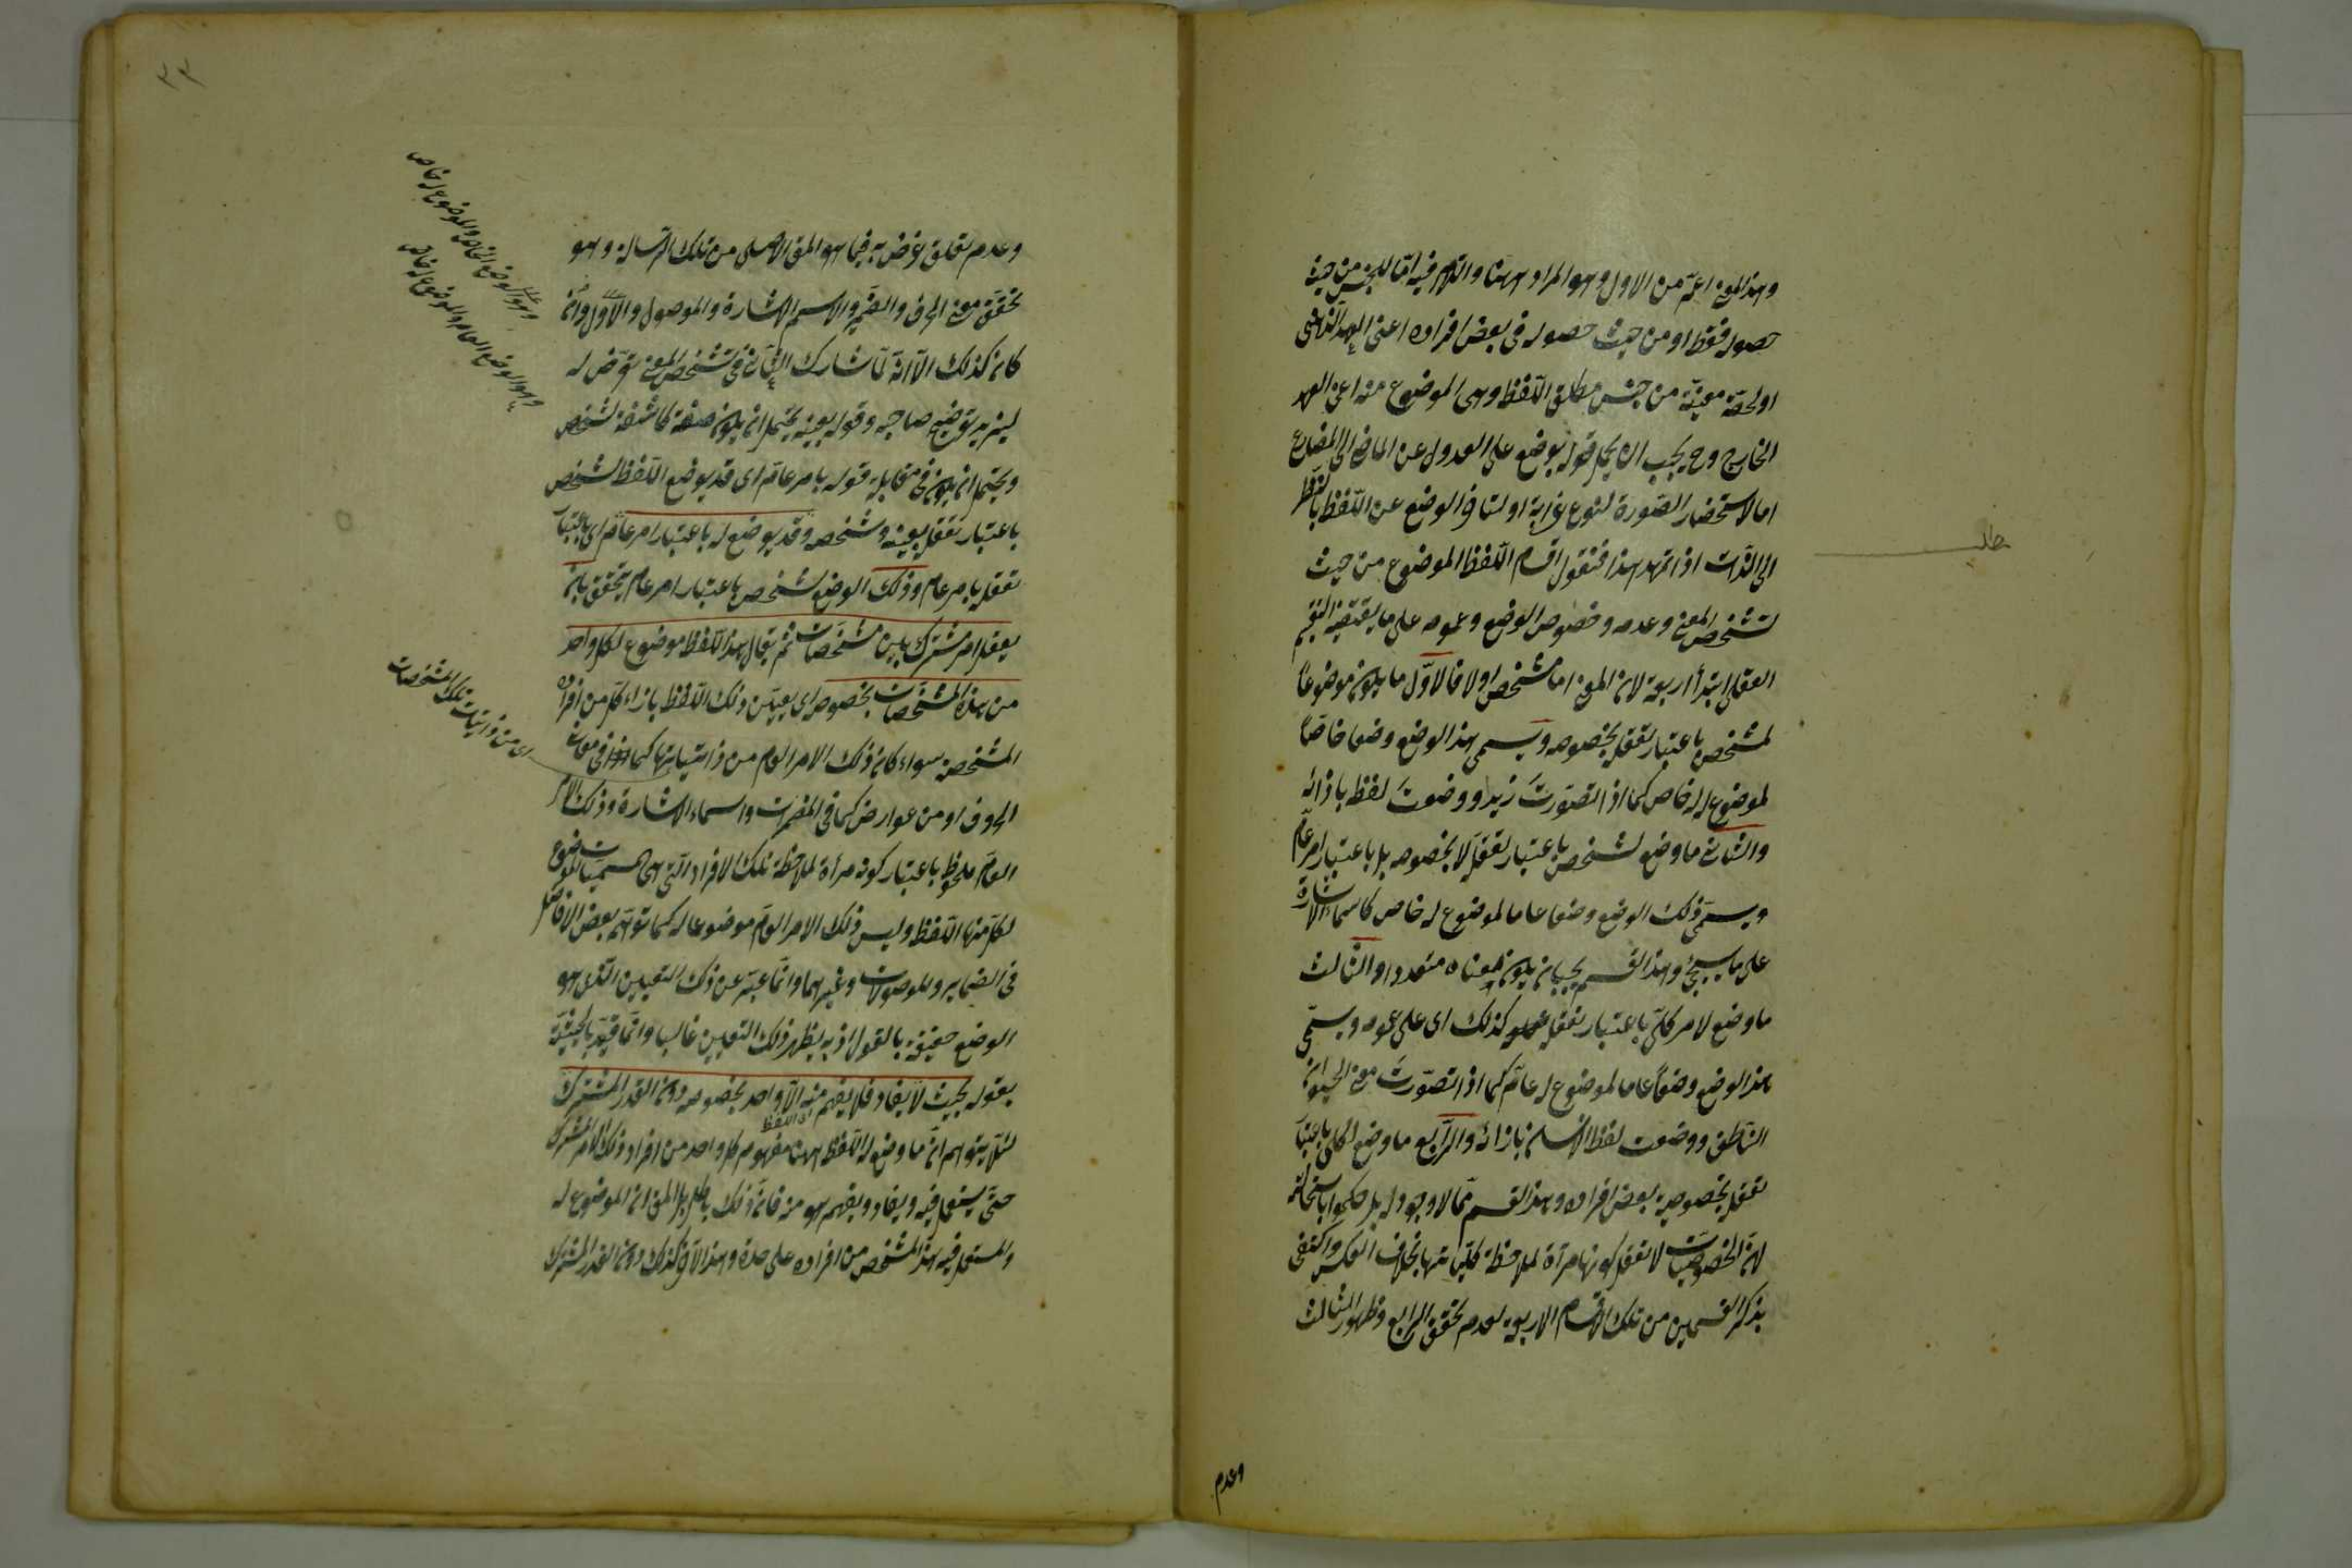 وهذا المعنى اعمّ من الاول وهو المراد ههنا واللام فيه امّا للجنس من حيث
حصوله فقط او من حيث حصوله فى بعض افراده اعنى العهد الذهنى
او لحصّة معينة من جنس مطلق اللّفظ وهى الموضوع منه اعنى العهد
الخارجى وح يجب ان يحمل قوله يوضع على العدول عن الماضى الى المضارع
اما لاستحضار الصّورة لنوع غرابة او لتأ فى الوضع عن اللّفظ بالنظر
الى الذّات اذا تمهد هذا فنقول اقسام اللّفظ الموضوع من حيث
تشخص المعنى وعدمه وخصوص الوضع وعمومه على ما يقتضيه التقسيم
العقلى ابتدأ اربعة لان المعنى اما مشخص اولا فالاوّل ما يكون موضوعاً
لمشخص باعتبار تعقله بخصوصه ويسمى هذا الوضع وضعا خاصّاً
لموضوع له خاص كما اذا تصوّرتَ زيدا ووضعتَ لفظ بازائه
والثانى ما وضع لمشخص باعتبار تعقله لا بخصوصه بل باعتبار امر عامّ
ويسمّى ذلك الوضع وضعا عاما لموضوع له خاص كاسماء الاشارة
على ما سيجئ وهذا القسم يجب ان يكون معناه متعددا والثالث
ما وضع لامر كلّى باعتبار تعقله كذلك اى على عمومه ويسمّى
هذا الوضع وضعاً عاما لموضوع له عامّ كما اذا تصوّرت معنى الحيوان
النّاطق ووضعت لفظ الانسان بازائه والرّابع ما وضع لكلى باعتبار
تعقله بخصوصية بعض افراده وهذا القسم ممّا لا وجود له بل حكموا باستحالته
لانّ الخصوصيّات لا تعقل كونها مرآة لملاحظة كلّياتها بخلاف العكس واكتفى
بذكر القسمين من تلك الاقسام الاربعة لعدم تحقق الرابع وظهور الثالث
وعدم
وعدم تعلق غرض به فيما هو المق الاصلى من تلك الرّسالة وهو
تحقق معنى الحرف والضمير والاسم الاشارة والموصول والاوّل وان
كان كذلك الّا انّه لمّا شارك الثانى فى تشخص المعنى تعرّض له
ليزيد توضيح صاحبه وقوله بعينه يحتمل ان يكون صفة كاشفة لشخص
ويحتمل ان يكون فى مقابلة قوله بامر عامّ اى قد يوضع اللّفظ لشخص
باعتبار تعقله بعينه وتشخصه وقد يوضع له باعتبار امر عامّ اى باعتبار
تعقله بامر عام وذلك الوضع لشخص باعتبار امر عام يتحقق بان
يعقل امر مشترك بين مشخصات ثم يقال هذا اللّفظ موضوع لكل واحد
من هذه المشخّصات بخصوصه اى يعيّن ذلك اللّفظ بازاء كلّ من افراده
المشخصة سواء كان ذلك الامر العام من ذاتياتها كما فى معانى
الحروف او من عوارض كما فى المضمرات واسماء الاشارة وذلك الامر
العامّ ملحوظ باعتبار كونه مرآة لملاحظة تلك الافراد الّتى هى مسميات الموضوع
لكلّ منها اللّفظ وليس ذلك الامر العامّ موضوعا له كما توهّم بعض الافاضل
فى الضماير والموصولات وغيرهما وانّما عبّر عن ذلك التعيين الّذى هو
الوضع حقيقة بالقول اذ به يظهر ذلك التعيين غالبا وانّما قيّد بالحيثيّة
بقوله بحيث لا يفاد فلا يفهم منه الّا واحد بخصوصه دون القدر المشترك
اى اللفظ
لئلّا يتوهم انّ ما وضع له اللّفظ ههنا مفهوم كل واحد من افراد ذلك الامر المشترك
حتّى يستعمل فيه ويفاد ويفهم هو منه فانّ ذلك باطل بل المق ان الموضوع له
والمستعمل فيه هذا المشخص من افراده على حدة وهذا الآخر كذلك دون القدر المشترك
وهو الوضع الخاص والموضوع له خاص
وهو الوضع العام والموضوع له خاص
اى من ذاتيات تلك المشخصات